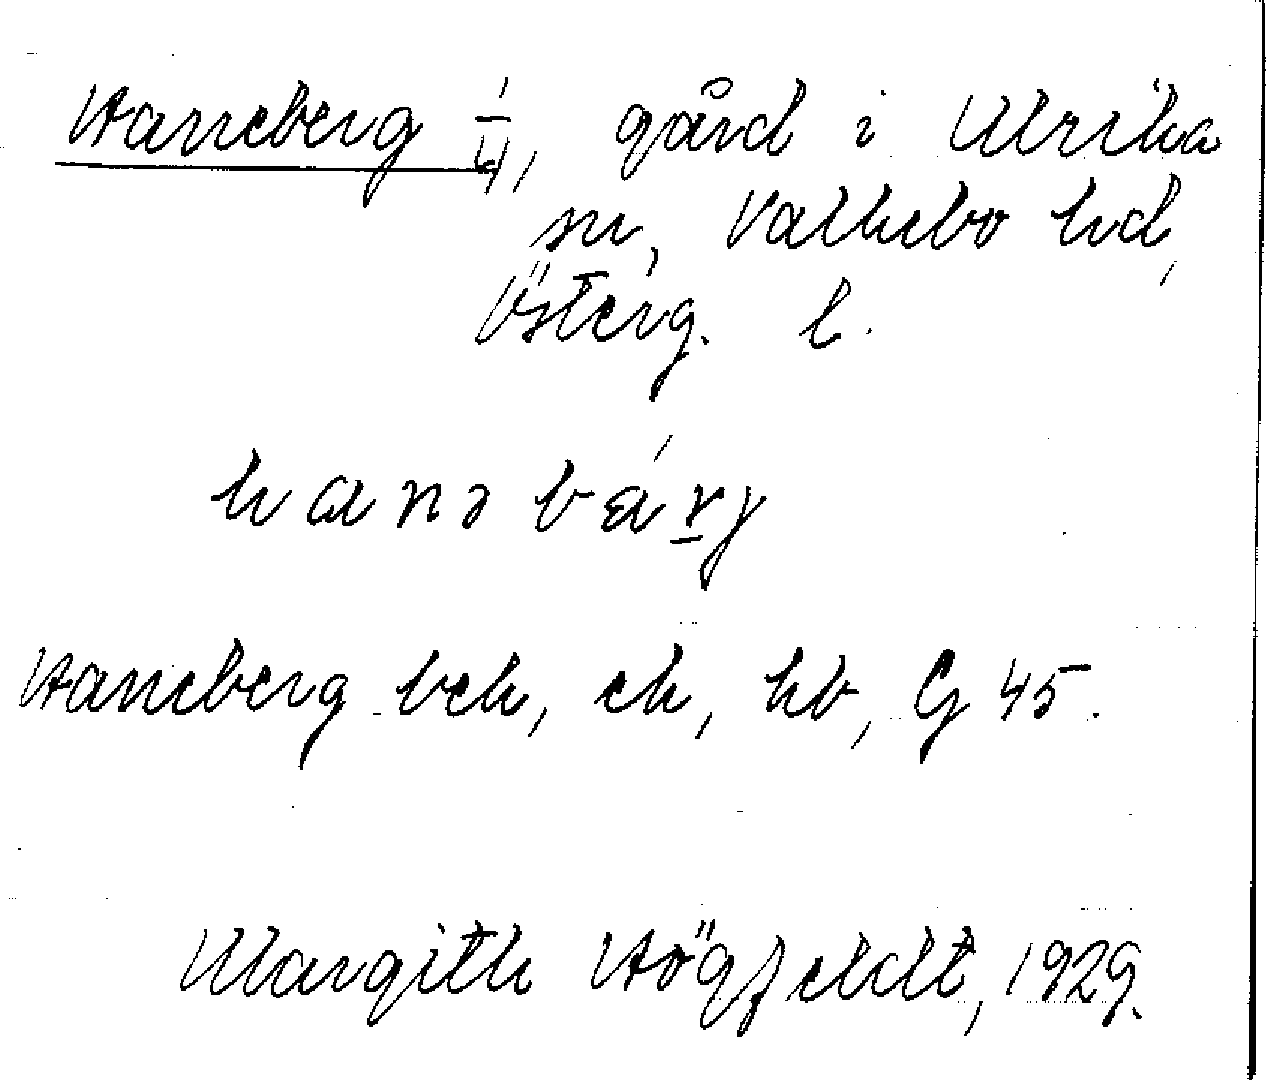 Haneberg 1/4, gård i Ulrika
sn, Valkebo hd,
Österg. l.
hanəbárj
Haneberg bek, ek, hb, G 45.
Margith Högfeldt, 1929.